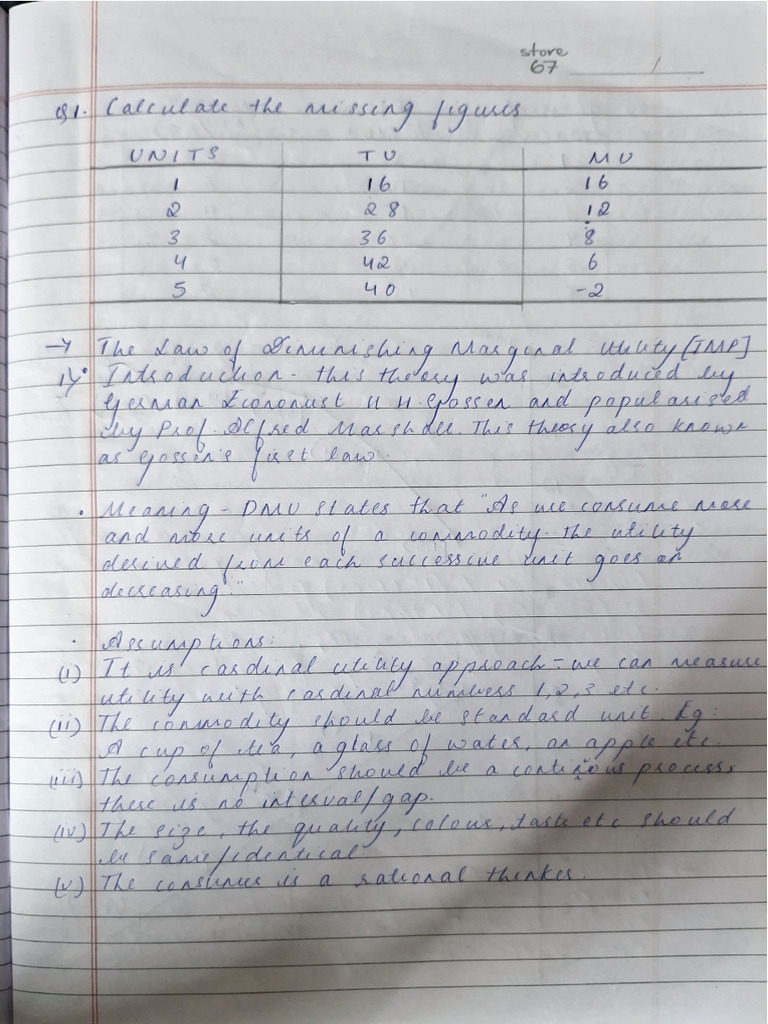 store
67 /
Q1. Calculate the missing figures
UNITS TU MU
1 16 16
2 28 12
3 36 8
4 42 6
5 40 -2
→ The Law of Diminishing Marginal Utility [IMP]
1) Introduction - this theory was introduced by
German Economist H.H. Gossen and popularised
by Prof. Alfred Marshall. This theory also known
as Gossen's first law.
• Meaning - DMU states that "As we consume more
and more units of a commodity. the utility
desired from each successive unit goes on
decreasing."
• Assumptions:
(i) It is cardinal utility approach - we can measure
utility with cardinal numbers 1, 2, 3 etc.
(ii) The commodity should be standard unit. Eg:
A cup of tea, a glass of water, an apple etc.
(iii) The consumption should be a continous process,
there is no interval/gap.
(iv) The size, the quality, colour, taste etc should
be same/identical.
(v) The consumer is a rational thinker.